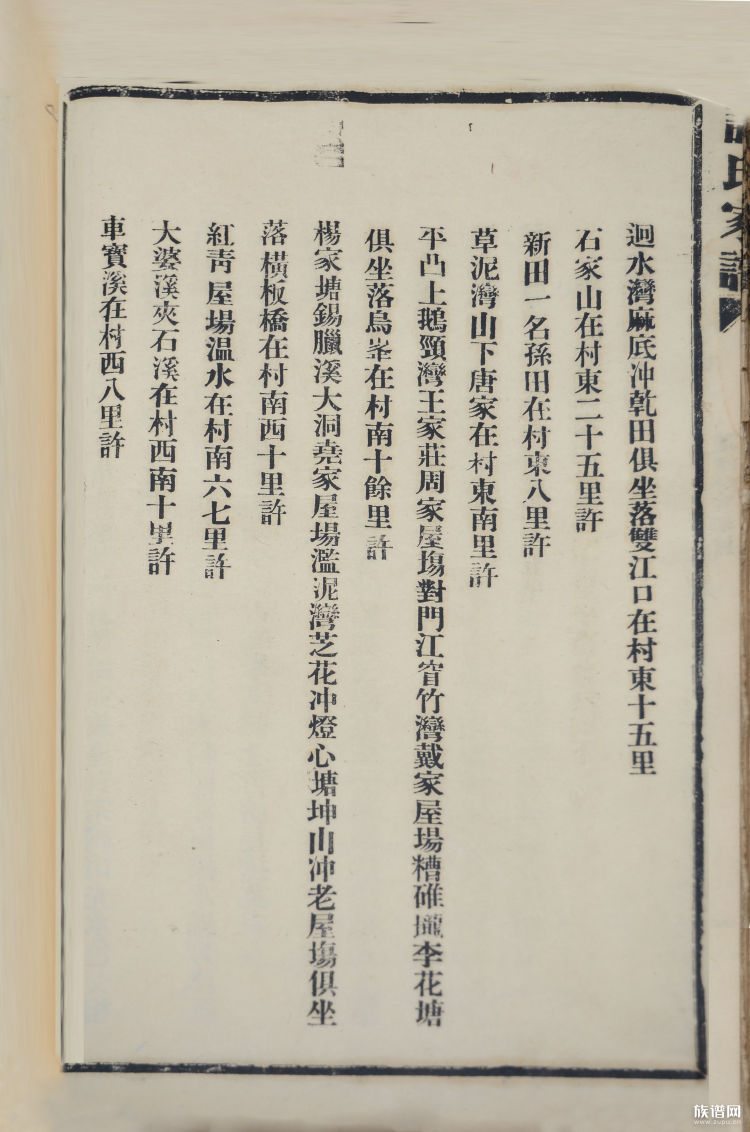 迴水灣麻底冲乾田俱坐落雙江口在村東十五里
石家山在村東二十五里許
新田一名孫田在村東八里許
草泥灣山下唐家在村東南里許
平凸上鵝頸灣王家莊周家屋塲對門江窅竹灣戴家屋場糟碓攏李花塘
俱坐落烏峯在村南十餘里許
楊家塘錫臘溪大洞堯家屋塲濫泥灣芝花冲燈心塘坤山冲老屋塲俱坐
落橫板橋在村南西十里許
紅靑屋場温水在村南六七里許
大婆溪夾石溪在村西南十里許
車寳溪在村西八里許
氏家譜
族谱网
www.zupu.cn